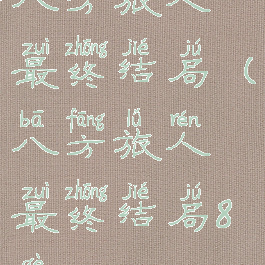 zuì zhōng jié jú
最终结局（
bā fāng lǚ rén
八方旅人
zuì zhōng jié jú
最终结局8